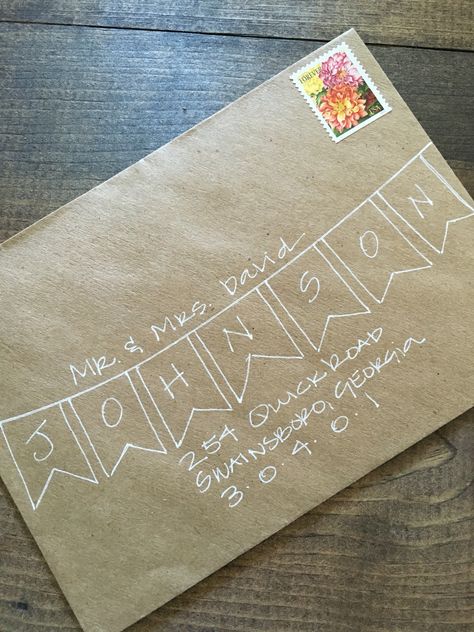 FOREVER
USA
Mr. & Mrs. David
JOHNSON
254 QUICK ROAD
SWAINSBORO, GEORGIA
3.0.4.0.1